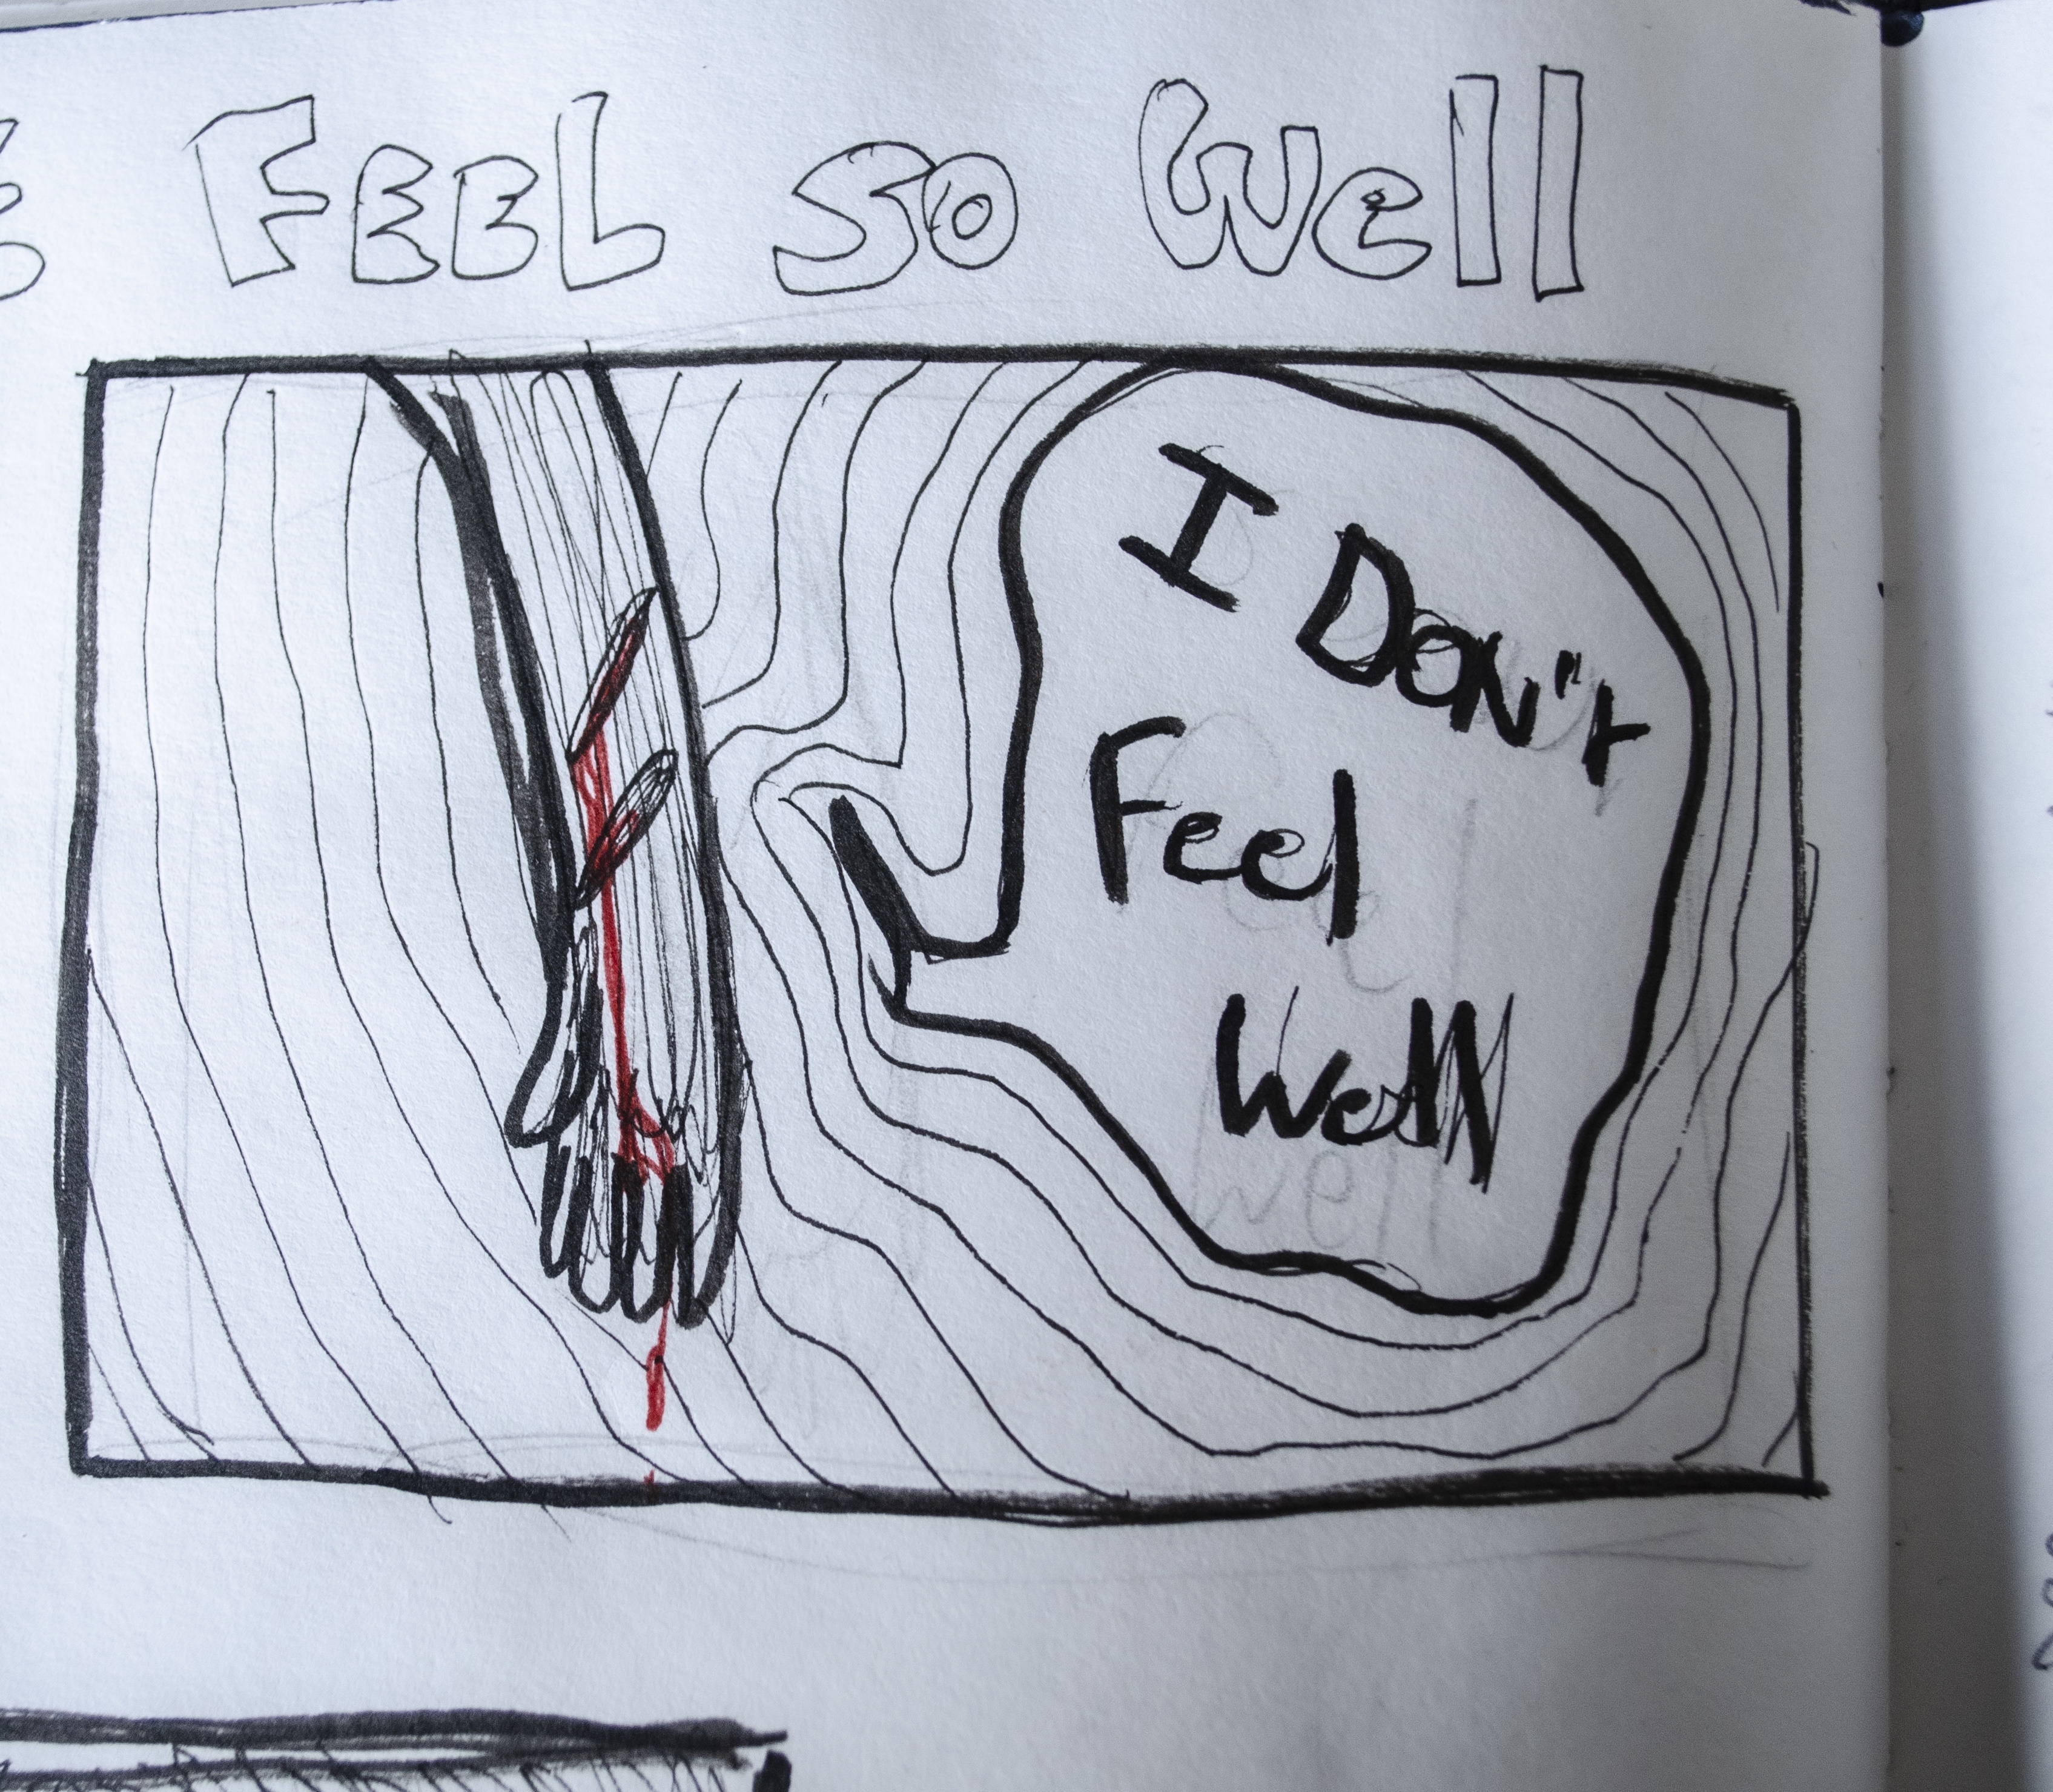 FEEL SO Well
I
DON't
Feel
Well